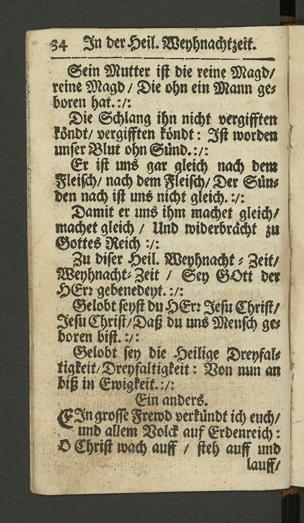 84 In der Heil. Weyhnachtzeit.
Sein Mutter ist die reine Magd/
reine Magd/ Die ohn ein Mann ge-
boren hat.:/:
Die Schlang ihn nicht vergifften
köndt/ vergifften köndt: Ist worden
unser Blut ohn Sünd.:/:
Er ist uns gar gleich nach dem
Fleisch/ nach dem Fleisch/ Der Sün-
den nach ist uns nicht gleich.:/:
Damit er uns ihm machet gleich/
machet gleich/ Und widerbrächt zu
Gottes Reich :/:
Zu diser Heil. Weyhnacht-Zeit/
Weyhnacht-Zeit / Sey GOtt der
HErr gebenedeyt.:/:
Gelobt seyst du HErr Jesu Christ/
Jesu Christ/Daß du uns Mensch ge-
boren bist.:/:
Gelobt sey die Heilige Dreyfal-
tigkeit/Dreyfaltigkeit: Von nun an
biß in Ewigkeit.:/:
Ein anders.
EIn grosse Frewd verkündt ich euch/
und allem Volck auff Erdenreich:
O Christ wach auff / steh auff und
lauff/